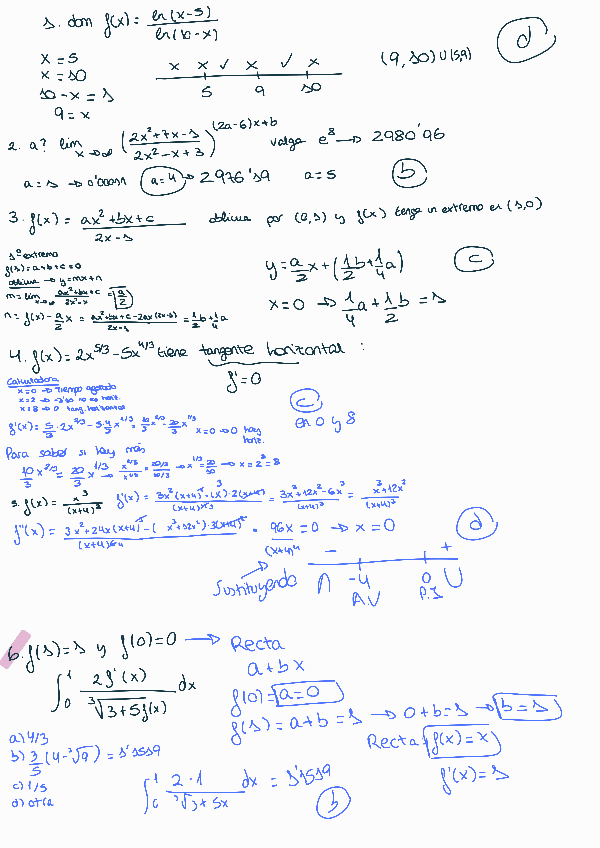 1. dom f(x) = ln(x-5) / ln(10-x)
d
x = 5
x = 10
10 - x = 1
9 = x
x x ✓ x ✓ x
5 9 10
(9, 10) ∪ (5,9)
2. a? lim x→∞ ((2x²+7x-1)/(2x²-x+3))^((2a-6)x+b) valga e⁸ → 2980'96
a=1 → 0'00091 a=4 → 2976'19 a=5 b
3. f(x) = (ax²+bx+c)/(2x-1) oblicua por (0,1) y f(x) tenga un extremo en (1,0)
1º extremo
f(1) = a+b+c = 0
oblicua → y = mx+n
m = lim x→∞ (ax²+bx+c)/(2x²-x) = a/2
n = f(x) - a/2 x = = 1/2 b + 1/4 a
y = a/2 x + (1/2 b + 1/4 a)
c
x=0 → 1/4 a + 1/2 b = 1
4. f(x) = 2x^(5/3) - 5x^(4/3) tiene tangente horizontal :
f' = 0
Calculadora
x=0 → Tiempo agotado
x=2 → no es horiz.
x=8 → 0 tang. horizontal
c
en 0 y 8
f'(x) = 5/3 · 2x^(2/3) - 5·4/3 x^(1/3) = 10/3 x^(2/3) - 20/3 x^(1/3) x=0 → 0 hay horiz.
Para saber si hay más
10/3 x^(2/3) = 20/3 x^(1/3) → x^(2/3)/x^(1/3) = (20/3)/(10/3) → x^(1/3) = 20/10 → x = 2³ = 8
5. f(x) = x³/(x+4)² f'(x) = (3x²(x+4)² - (x)³·2(x+4))/(x+4)⁴ = (3x³+12x²-6x³)/(x+4)³ = (x³+12x²)/(x+4)³
f''(x) = (3x²+24x(x+4)³ - (x³+12x²)·3(x+4)²)/(x+4)⁶ = 96x/(x+4)⁴ = 0 → x = 0
d
Sustituyendo
- +
∩ -4 0 ∪
A.V P.I
6. f(1) = 1 y f(0) = 0 → Recta
a + bx
∫₀¹ 2f'(x) / ³√(3+5f(x)) dx
f(0) = a = 0
f(1) = a+b = 1 → 0+b = 1 → b = 1
Recta f(x) = x
f'(x) = 1
a) 4/3
b) 3/5 (4-³√9) = 1'1519
c) 1/5
d) otra
∫₀¹ 2·1 / ³√(3+5x) dx = 1'1519
b